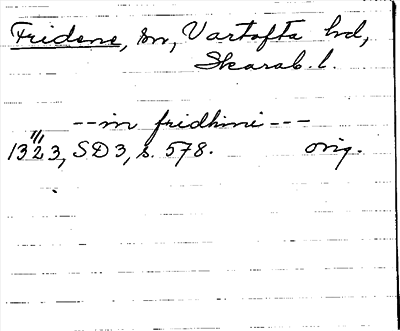 Fridene, sn, Vartofta hd,
Skarab. l.
--- in fridhini ---
1323, SD 3, s. 578. orig.